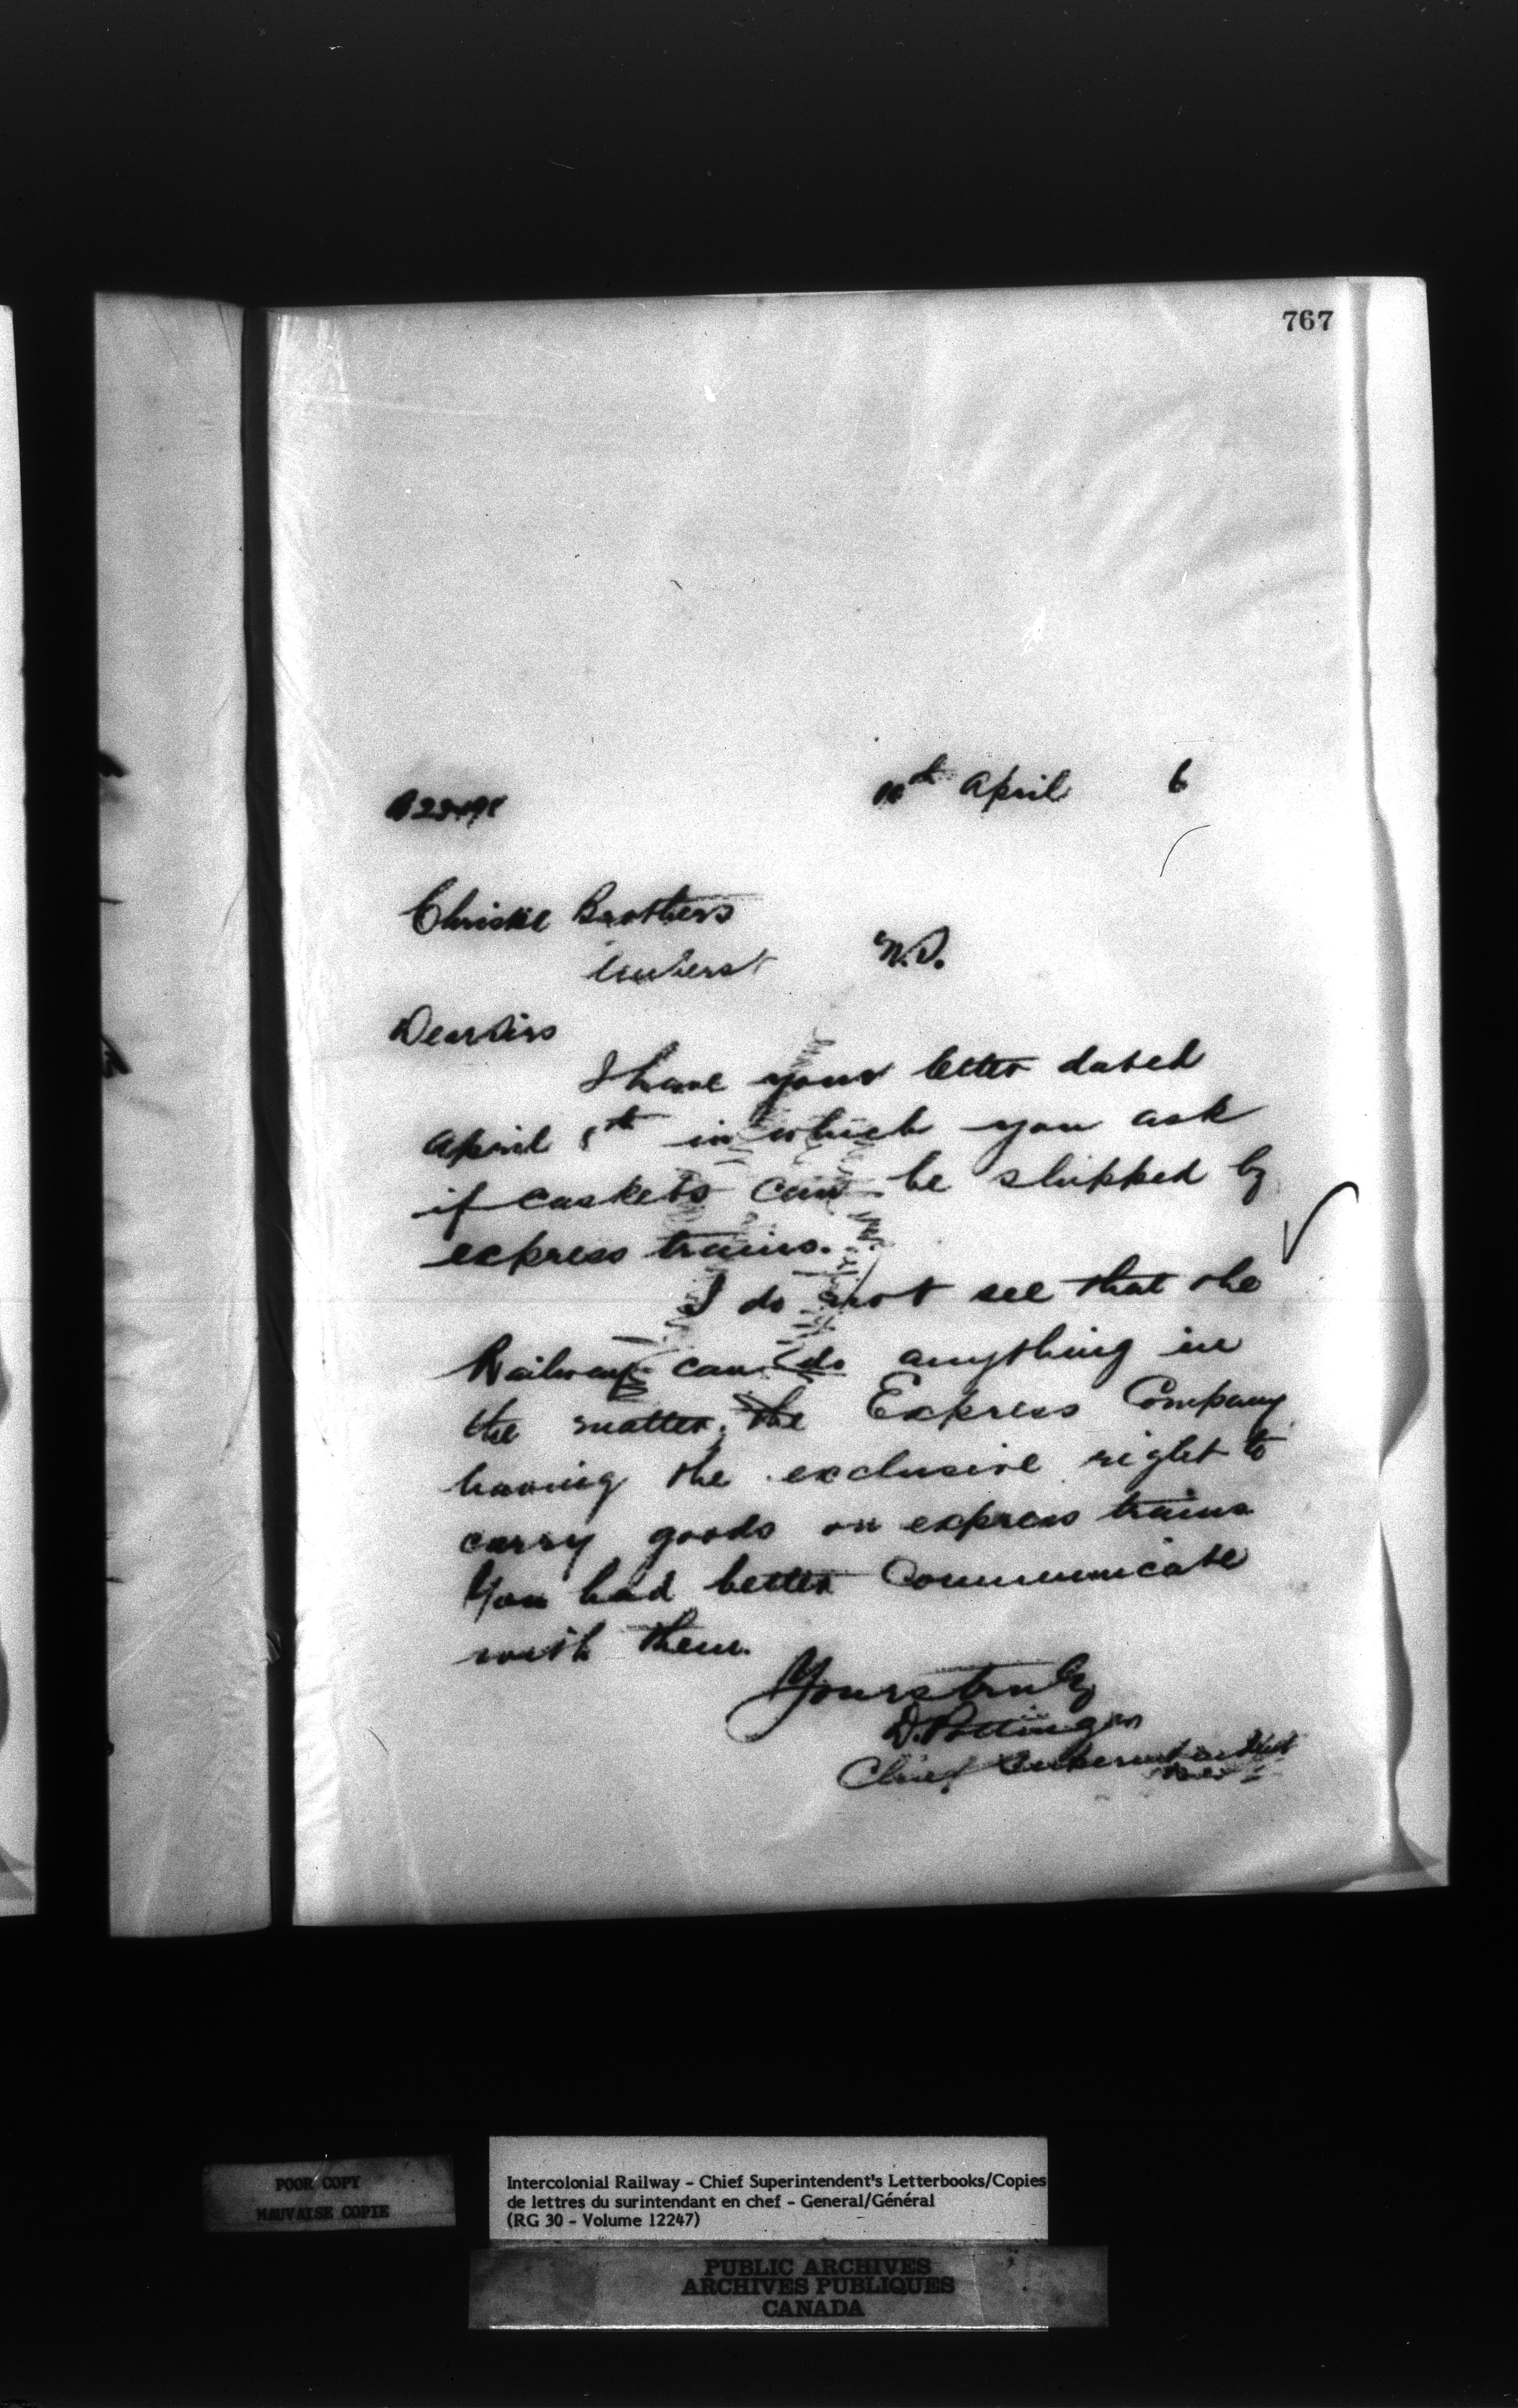 767
April 6
Christie Brothers
Amherst N.S.
Dear Sirs
I have your letter dated
April 8th in which you ask
if caskets can be shipped by
express trains.
I do not see that the
Railway can do anything in
the matter, the Express Company
having the exclusive right to
carry goods on express trains
You had better Communicate
with them.
Yours truly
D. Pottinger
Chief Superintendent
POOR COPY
MAUVAISE COPIE
Intercolonial Railway - Chief Superintendent's Letterbooks/Copies
de lettres du surintendant en chef - General/Général
(RG 30 - Volume 12247)
PUBLIC ARCHIVES
ARCHIVES PUBLIQUES
CANADA